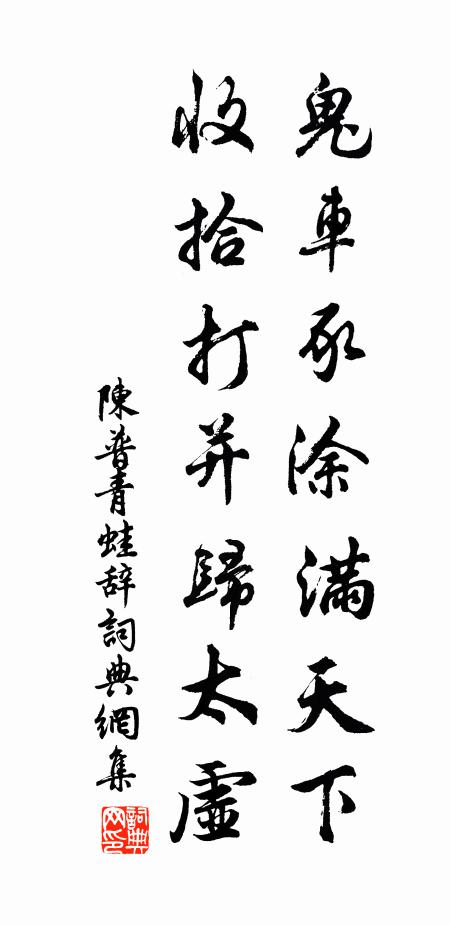 鬼車豕涂滿天下
收拾打并歸太虛
陳普青蛙辞詞典網集
詞典网印